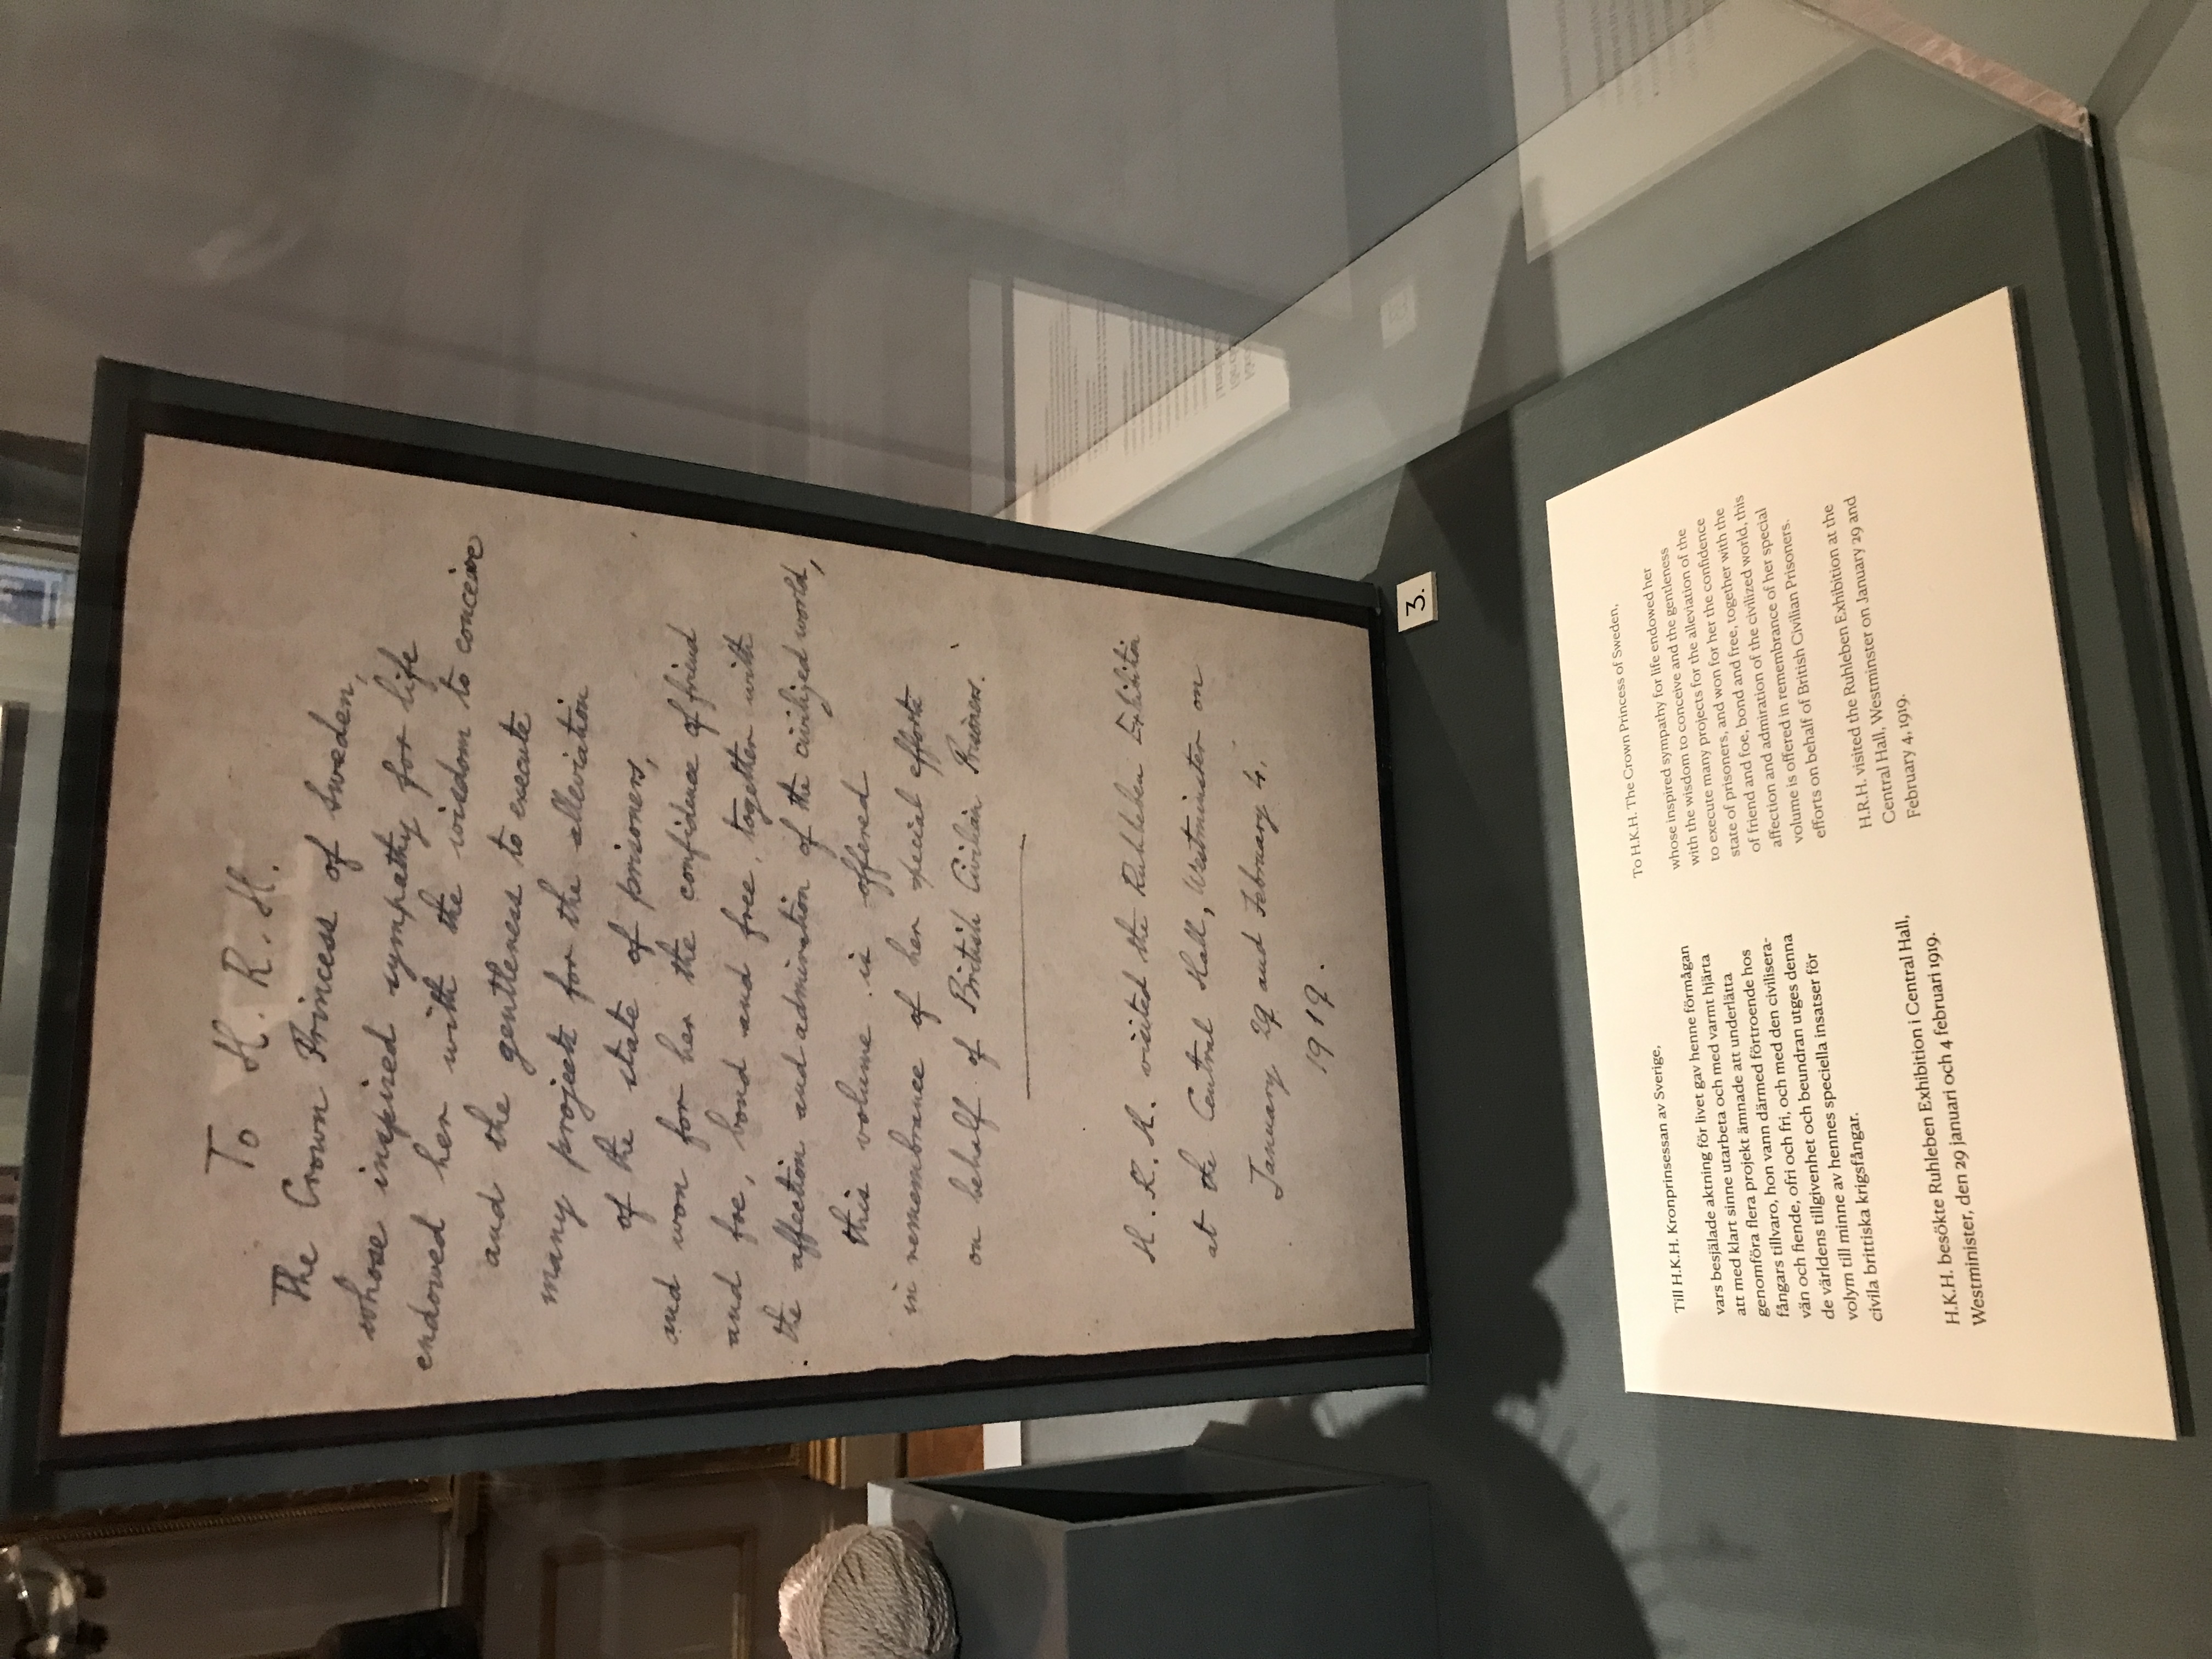 To H. R. H.
The Crown Princess of Sweden,
whose inspired sympathy for life
endowed her with the wisdom to conceive
and the gentleness to execute
many projects for the alleviation
of the state of prisoners,
and won for her the confidence of friend
and foe, bond and free, together with
the affection and admiration of the civilized world,
this volume is offered
in remembrance of her special efforts
on behalf of British Civilian Prisoners.
H. R. H. visited the Ruhleben Exhibition
at the Central Hall, Westminster on
January 29 and February 4.
1919.
3.
Till H.K.H. Kronprinsessan av Sverige,
vars besjälade aktning för livet gav henne förmågan
att med klart sinne utarbeta och med varmt hjärta
genomföra flera projekt ämnade att underlätta
fångars tillvaro, hon vann därmed förtroende hos
vän och fiende, ofri och fri, och med den civilisera-
de världens tillgivenhet och beundran utges denna
volym till minne av hennes speciella insatser för
civila brittiska krigsfångar.
H.K.H. besökte Ruhleben Exhibition i Central Hall,
Westminister, den 29 januari och 4 februari 1919.
To H.K.H. The Crown Princess of Sweden,
whose inspired sympathy for life endowed her
with the wisdom to conceive and the gentleness
to execute many projects for the alleviation of the
state of prisoners, and won for her the confidence
of friend and foe, bond and free, together with the
affection and admiration of the civilized world, this
volume is offered in remembrance of her special
efforts on behalf of British Civilian Prisoners.
H.R.H. visited the Ruhleben Exhibition at the
Central Hall, Westminster on January 29 and
February 4, 1919.